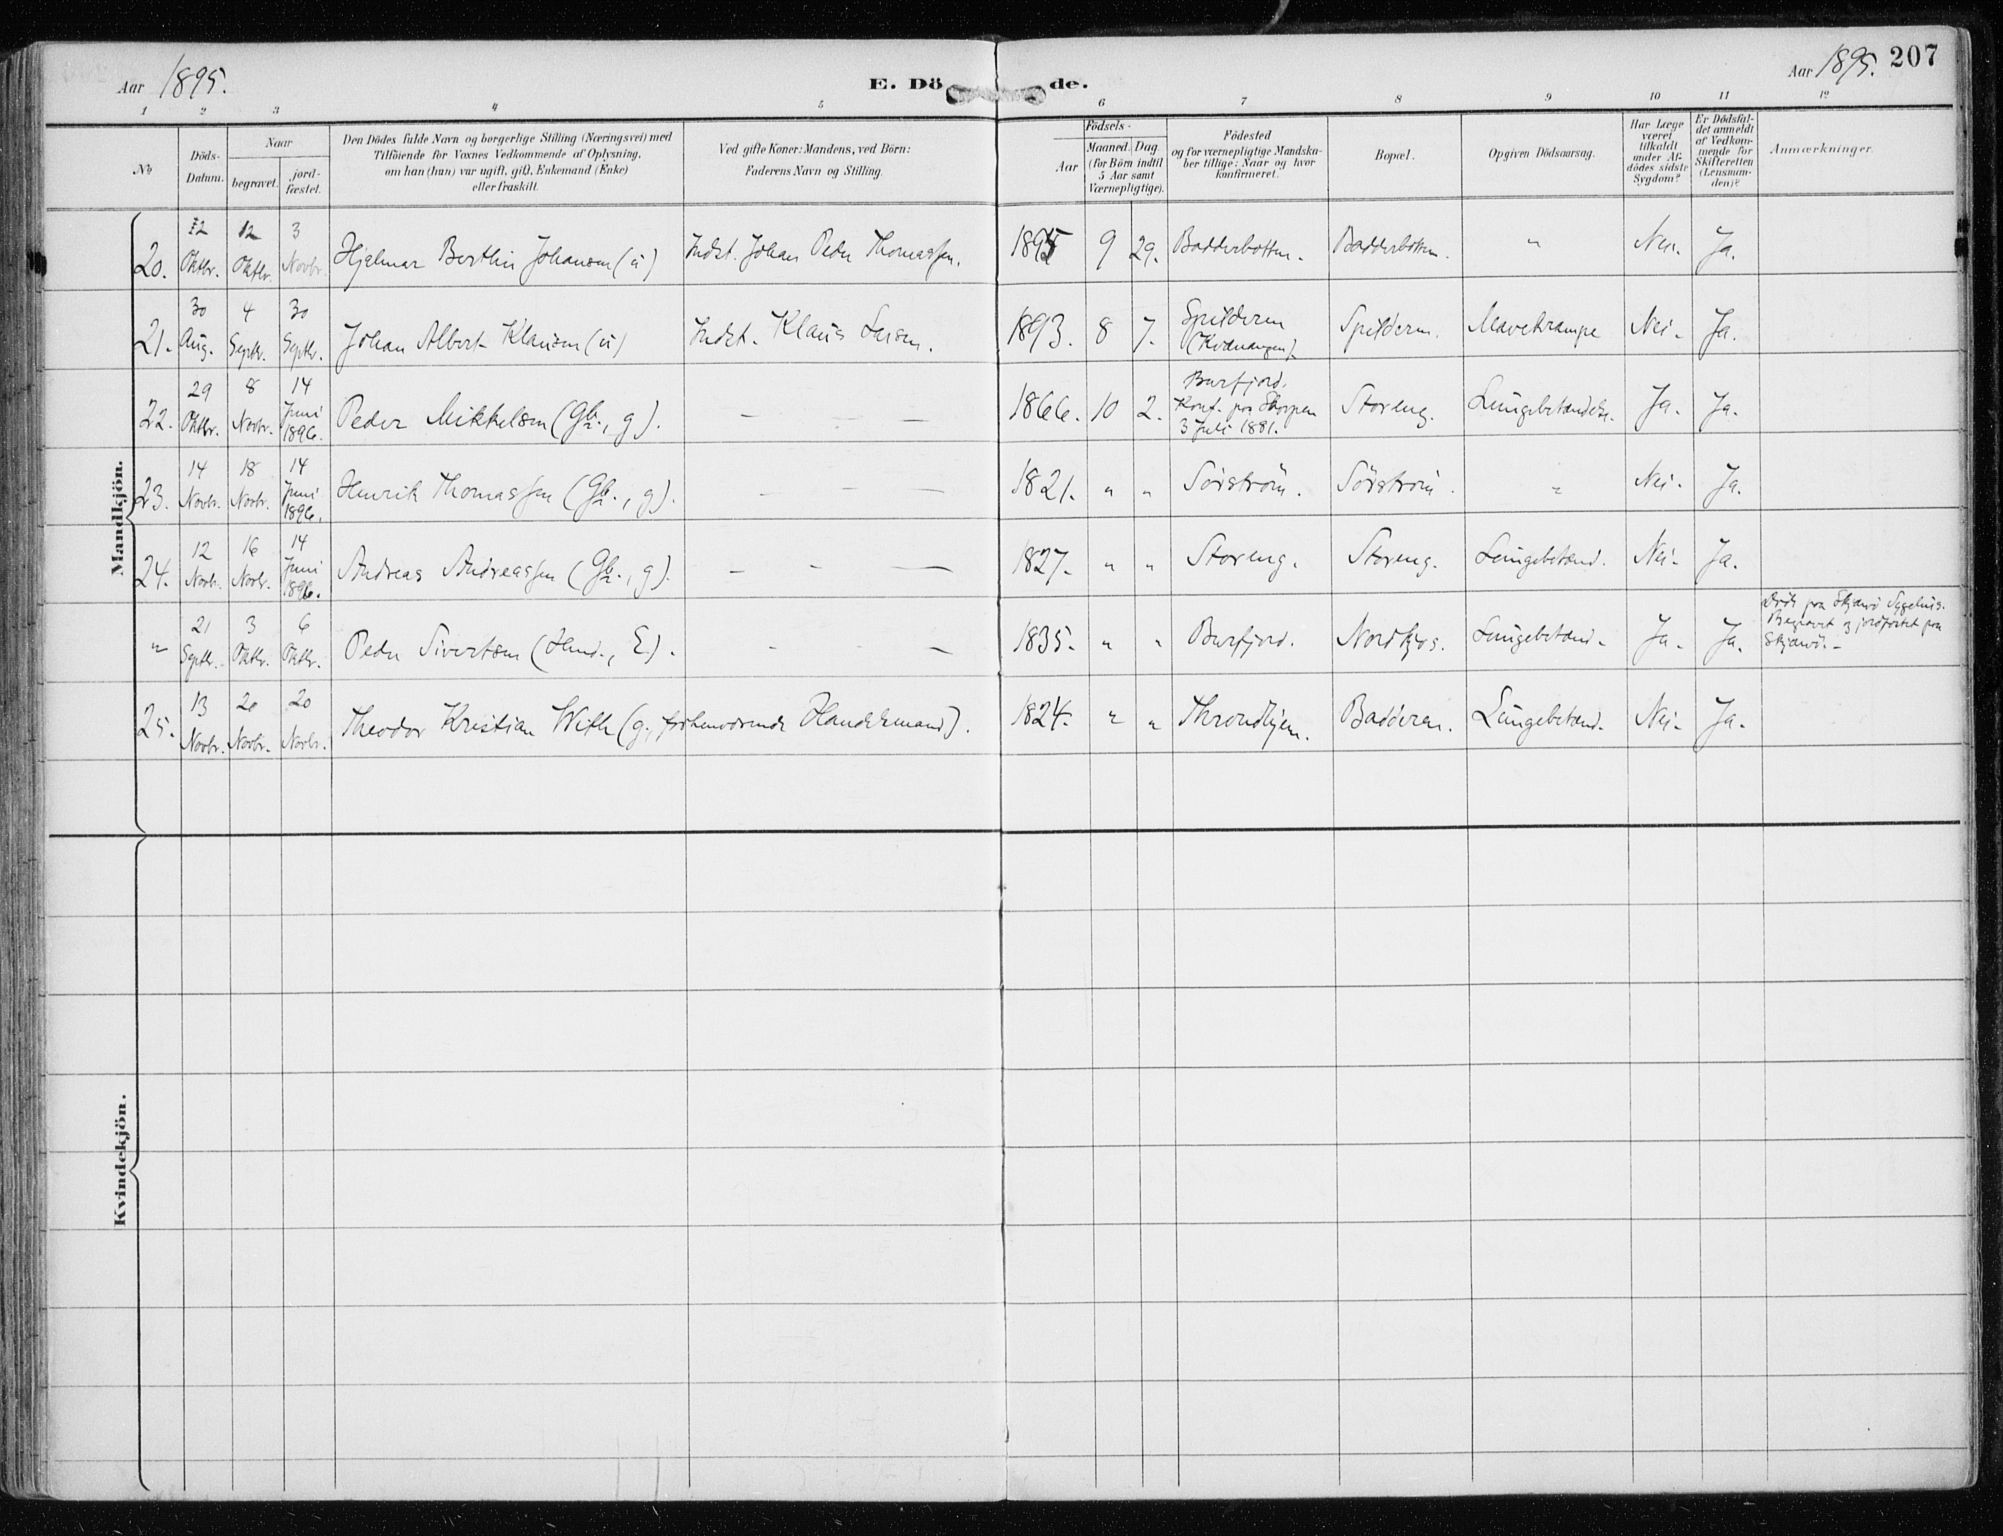 Aar 1895.
E. Dö de.
Aar 1895. 207
1 2 3 4 5 6 7 8 9 10 11 12
No
Döds-
Datum.
Naar
begravet. jord-
fæstet.
Den Dödes fulde Navn og borgerlige Stilling (Næringsvei) med
Tilföiende for Voxnes Vedkommende af Oplysning,
om han (hun) var ugift, gift, Enkemand (Enke)
eller fraskilt.
Ved gifte Koner: Mandens, ved Börn:
Faderens Navn og Stilling.
Födsels-
Aar
Maaned. Dag.
(for Börn indtil
5 Aar samt
Værnepligtige).
Födested
og for værnepligtige Mandska-
ber tillige: Naar og hvor
konfirmeret.
Bopæl.
Opgiven Dödsaarsag.
Har Læge
været
tilkaldt
under Af-
dödes sidste
Sygdom?
Er Dödsfal-
det anmeldt
af Vedkom-
mende for
Skifteretten
(Lensman-
den)?
Anmærkninger.
Mandkjön.
20. 12 Oktbr. 12 Oktbr. 3 Novbr. Hjalmar Berthin Johansen (u) Indst. Johan Peder Thomassen. 1895 9 29. Badderbotten. Badderbotten. " Nei. Ja.
21. 30 Aug. 4 Septbr. 30 Septbr. Johan Albert Klausen (u) Indst. Klaus Larsen. 1893. 8 7. Spilderen (Kvænangen). Spilderen. Mavekrampe Nei- Ja.
22. 29 Oktbr. 8 Novbr. 14 Juni 1896. Peder Mikkelsen (Gbr., g). — — 1866. 10 2. Burfjord. Konf. paa Skorpen 3 Juli 1881. Storeng. Lungebetændelse. Ja. Ja.
23. 14 Novbr. 18 Novbr. 14 Juni 1896. Henrik Thomassen (Gbr., g). — — — 1821. " " Sörström. Sörström. " Nei- Ja.
24. 12 Novbr. 16 Novbr. 14 Juni 1896. Andreas Andreassen (Gbr., g). — - — 1827. " " Storeng. Storeng. Lungebetænd. Nei- Ja.
" 21 Septbr. 3 Oktbr. 6 Oktbr. Peder Sivertsen (Hand., E). - - — 1835. " " Burfjord. Nordkjos. Lungebetænd. Ja. Ja. Döde paa Skjærvö Sygehus. Begravet og jordfæstet paa Skjærvö.
25. 13 Novbr. 20 Novbr. 20 Novbr. Theodor Kristian With (g., forhenværende Handelsmand). 1824. " " Throndhjem. Badderen. Lungebetænd. Nei- Ja.
Kvindekjön.